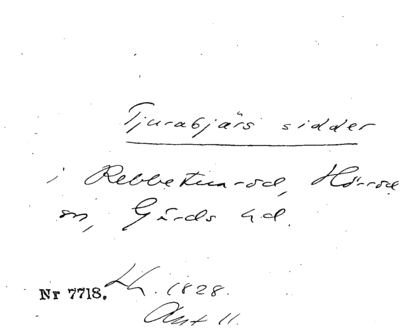 Tjurabjärs sidder
i Rebbetuaröd, Hörröd
sn, Gärds hd.
Nr 7718. Lh. 1828.
Akt 11.